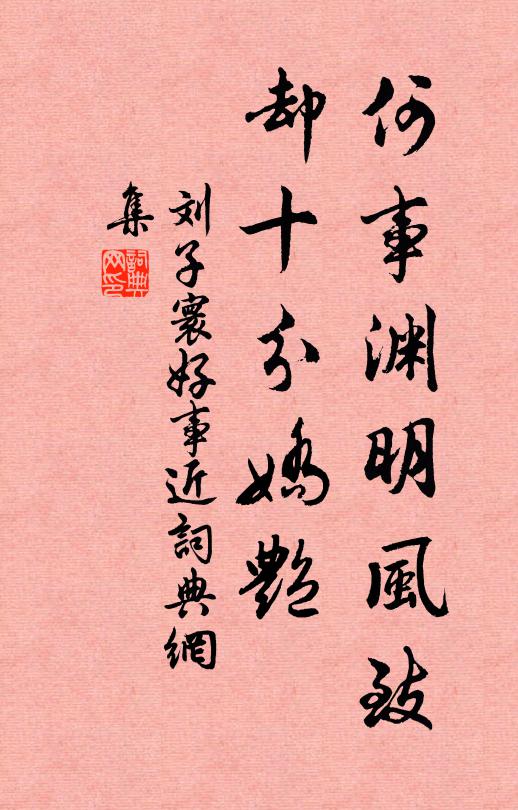 何事渊明風致
却十分嬌艷
刘子寰好事近詞典網
集
詞典
网印